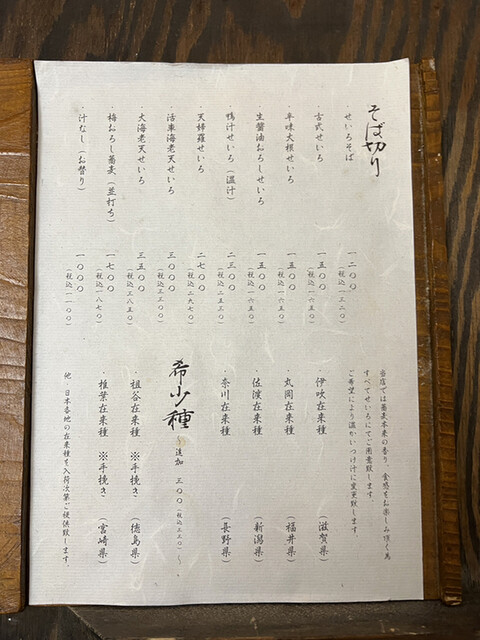 そば切り
・せいろそば 一二〇〇（税込一三二〇）
・古式せいろ 一五〇〇（税込一六五〇）
・辛味大根せいろ 一五〇〇（税込一六五〇）
・生醤油おろしせいろ 一五〇〇（税込一六五〇）
・鴨汁せいろ（温汁） 二三〇〇（税込二五三〇）
・天婦羅せいろ 二七〇〇（税込二九七〇）
・活車海老天せいろ 三〇〇〇（税込三三〇〇）
・大海老天せいろ 三五〇〇（税込三八五〇）
・梅おろし蕎麦（並打ち） 一七〇〇（税込一八七〇）
・汁なし（お替り） 一〇〇〇（税込一一〇〇）
当店では蕎麦本来の香り、食感をお楽しみ頂く為
すべてせいろにてご用意致します。
ご希望により温かいつけ汁に変更致します
・伊吹在来種 （滋賀県）
・丸岡在来種 （福井県）
・佐渡在来種 （新潟県）
・奈川在来種 （長野県）
希少種 〜追加 三〇〇（税込三三〇）〜
・祖谷在来種 ※手挽き （徳島県）
・椎葉在来種 ※手挽き （宮崎県）
他・日本各地の在来種を入荷次第ご提供致します。